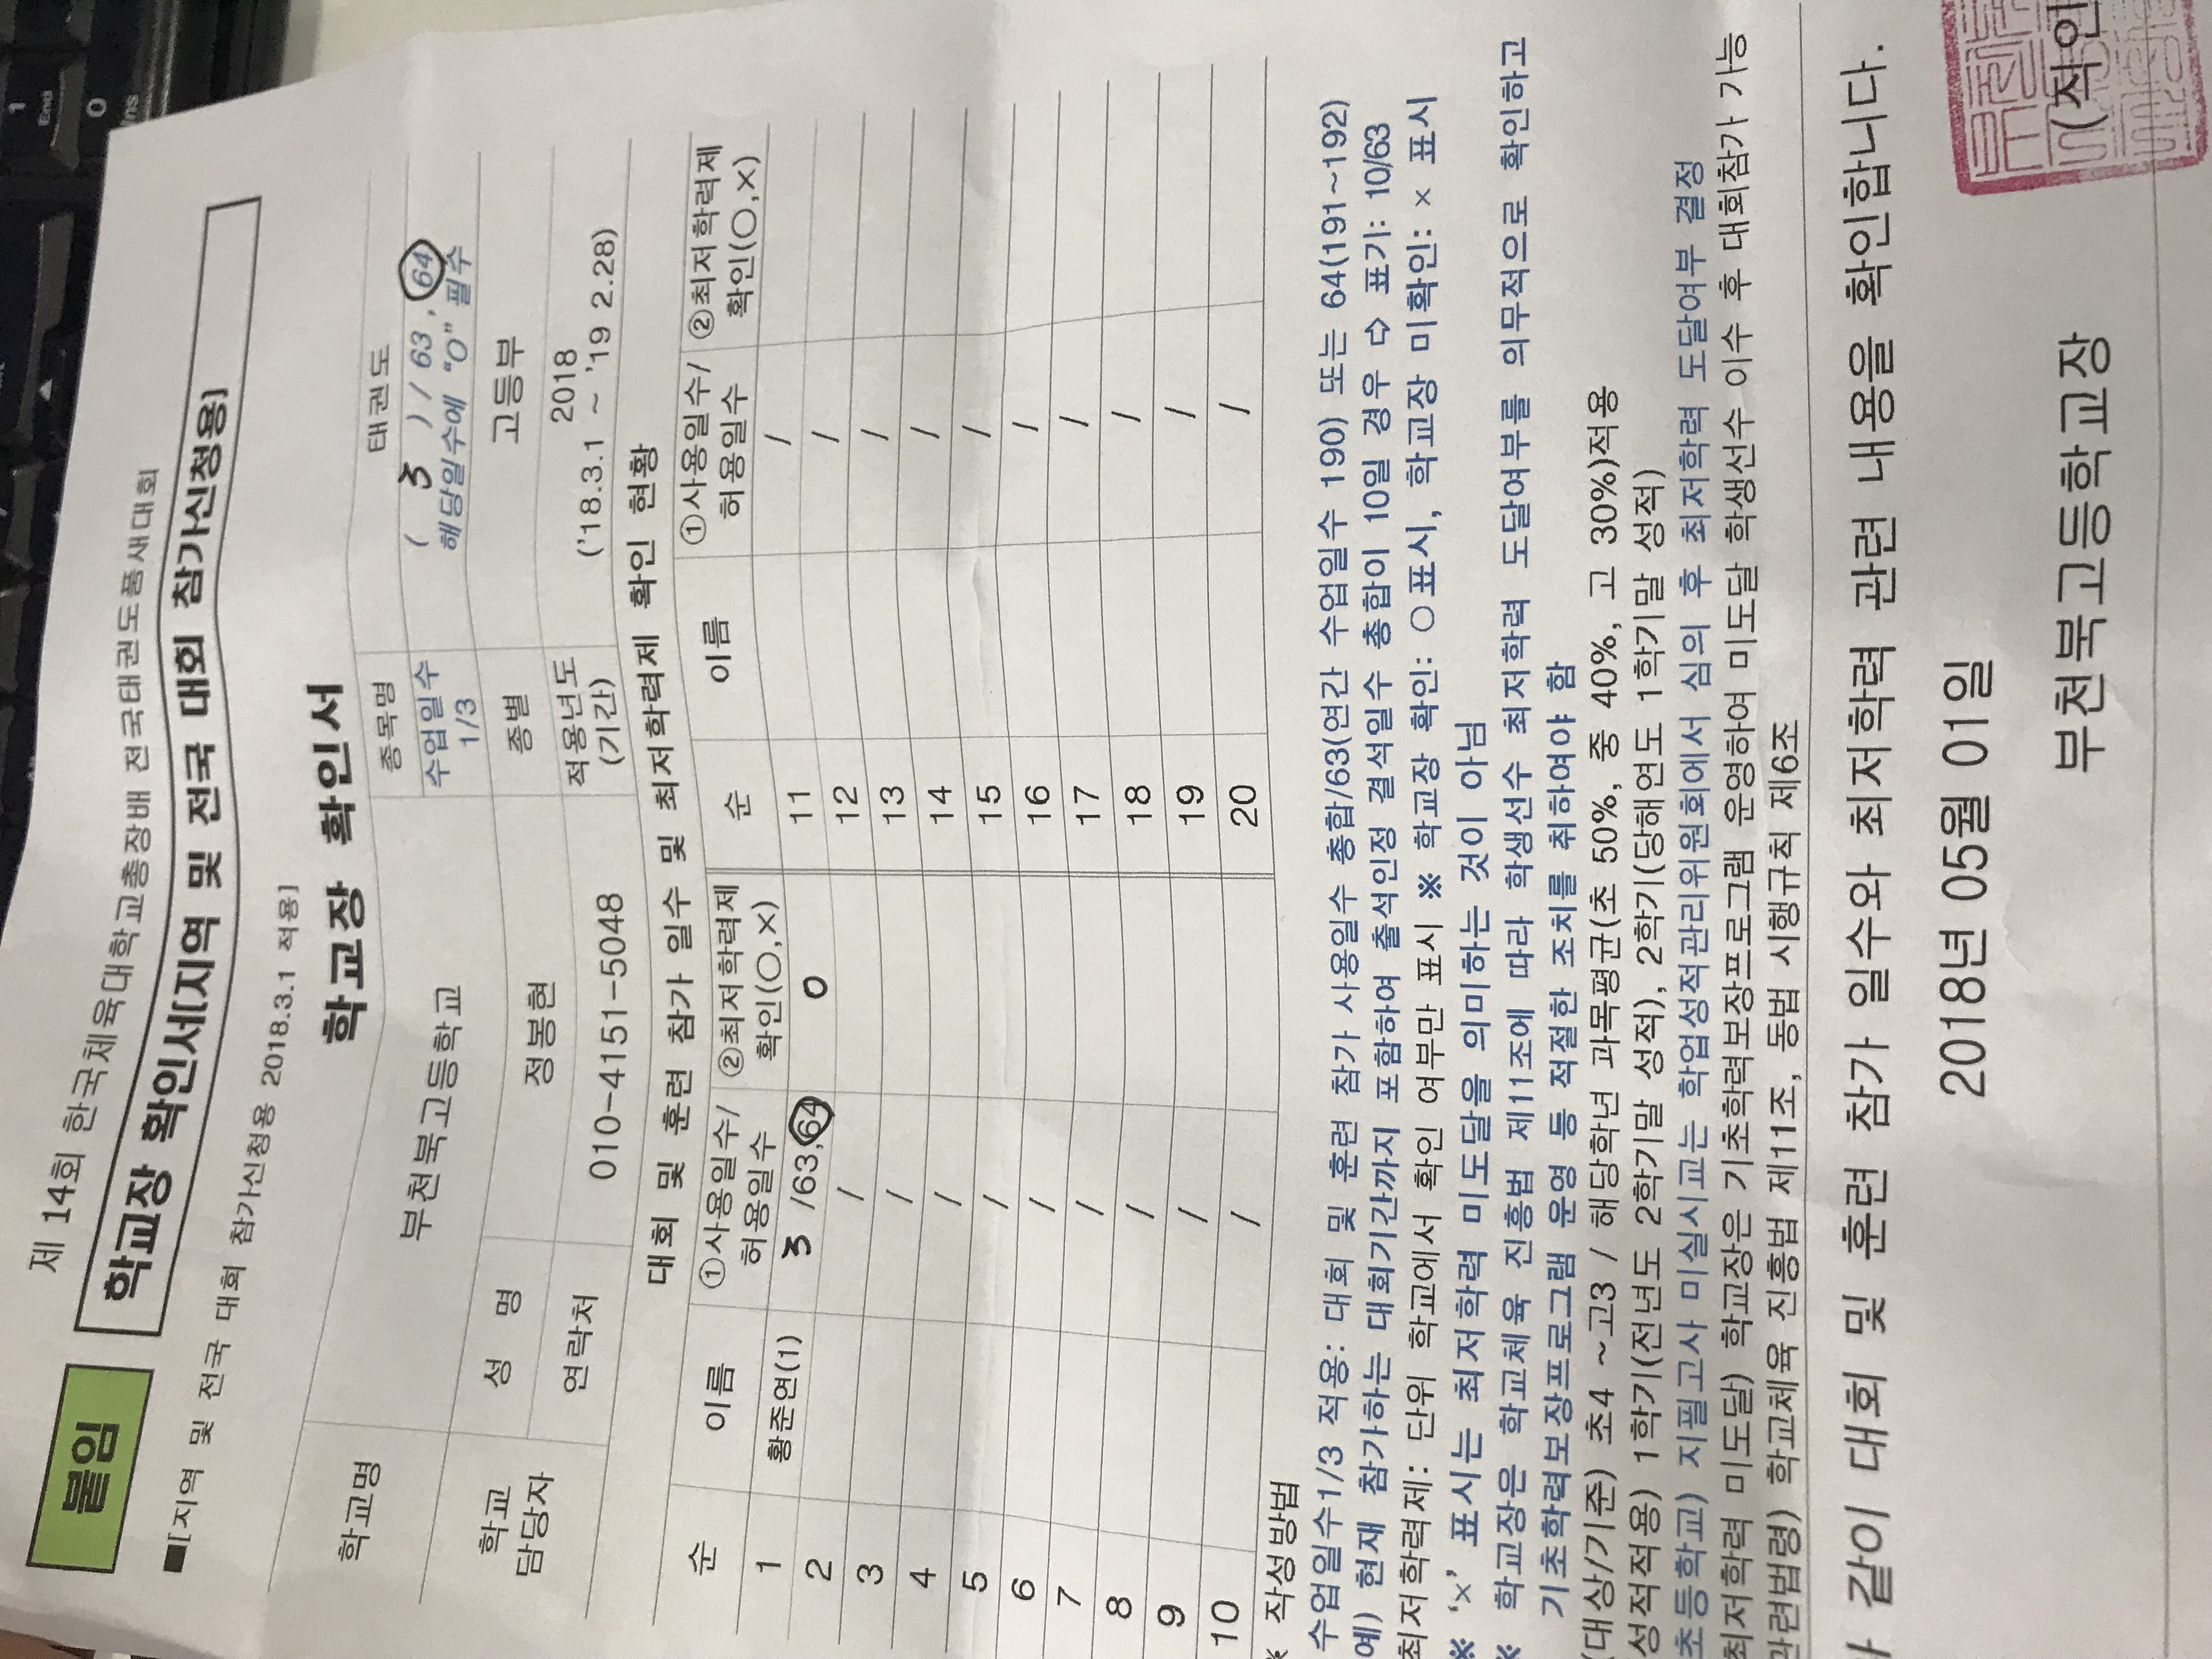 제 14회 한국체육대학교총장배 전국태권도품새대회
붙임 학교장 확인서[지역 및 전국 대회 참가신청용]
■[지역 및 전국 대회 참가신청용 2018.3.1 적용]
학교장 확인서
학교명 부천북고등학교 종목명 태권도
수업일수 1/3 ( 3 ) / 63 , 64
해당일수에 "O" 필수
학교 담당자 성 명 정봉현 종별 고등부
연락처 010-4151-5048 적용년도 (기간) 2018
('18.3.1 ~ '19 2.28)
대회 및 훈련 참가 일수 및 최저학력제 확인 현황
순 이름 ①사용일수/ 허용일수 ②최저학력제 확인(○,×) 순 이름 ①사용일수/ 허용일수 ②최저학력제 확인(○,×)
1 황준연(1) 3 /63,64 O 11 /
2 / 12 /
3 / 13 /
4 / 14 /
5 / 15 /
6 / 16 /
7 / 17 /
8 / 18 /
9 / 19 /
10 / 20 /
※ 작성방법
수업일수1/3 적용: 대회 및 훈련 참가 사용일수 총합/63(연간 수업일수 190) 또는 64(191~192)
예) 현재 참가하는 대회기간까지 포함하여 출석인정 결석일수 총합이 10일 경우 ⇨ 표기: 10/63
최저학력제: 단위 학교에서 확인 여부만 표시 ※ 학교장 확인: ○표시, 학교장 미확인: × 표시
※ '×' 표시는 최저학력 미도달을 의미하는 것이 아님
※ 학교장은 학교체육 진흥법 제11조에 따라 학생선수 최저학력 도달여부를 의무적으로 확인하고
기초학력보장프로그램 운영 등 적절한 조치를 취하여야 함
(대상/기준) 초4 ~고3 / 해당학년 과목평균(초 50%, 중 40%, 고 30%)적용
성적적용) 1학기(전년도 2학기말 성적), 2학기(당해연도 1학기말 성적)
초등학교) 지필고사 미실시교는 학업성적관리위원회에서 심의 후 최저학력 도달여부 결정
최저학력 미도달) 학교장은 기초학력보장프로그램 운영하여 미도달 학생선수 이수 후 대회참가 가능
관련법령) 학교체육 진흥법 제11조, 동법 시행규칙 제6조
같이 대회 및 훈련 참가 일수와 최저학력 관련 내용을 확인합니다.
2018년 05월 01일
부천북고등학교장 (직인